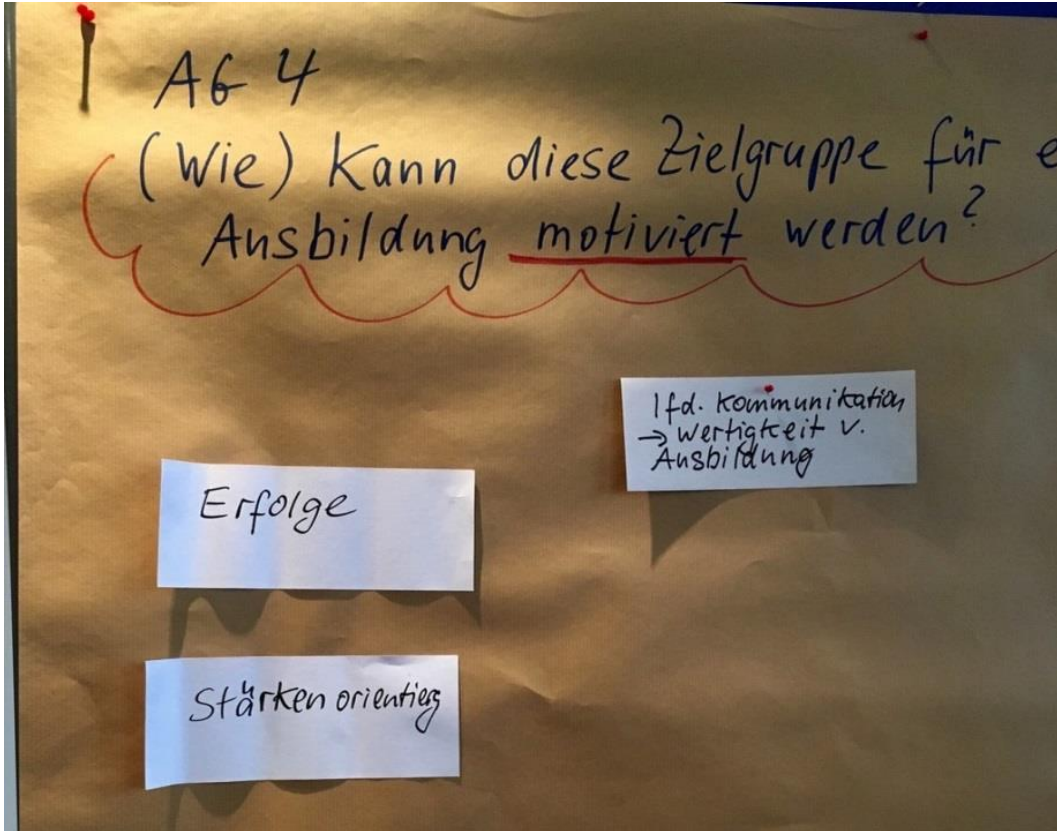 AG 4
(Wie) Kann diese Zielgruppe für e
Ausbildung motiviert werden?
lfd. Kommunikation
→ Wertigkeit v.
Ausbildung
Erfolge
Stärken orientierg